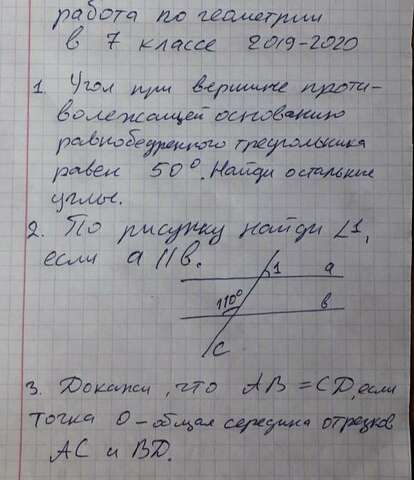 работа по геометрии
в 7 классе 2019-2020
1. Угол при вершине проти-
волежащей основанию
равнобедренного треугольника
равен 50°. Найди остальные
углы.
2. По рисунку найди ∠1,
если a || b.
1 a
110° b
c
3. Докажи, что AB = CD, если
точка O - общая середина отрезков
AC и BD.